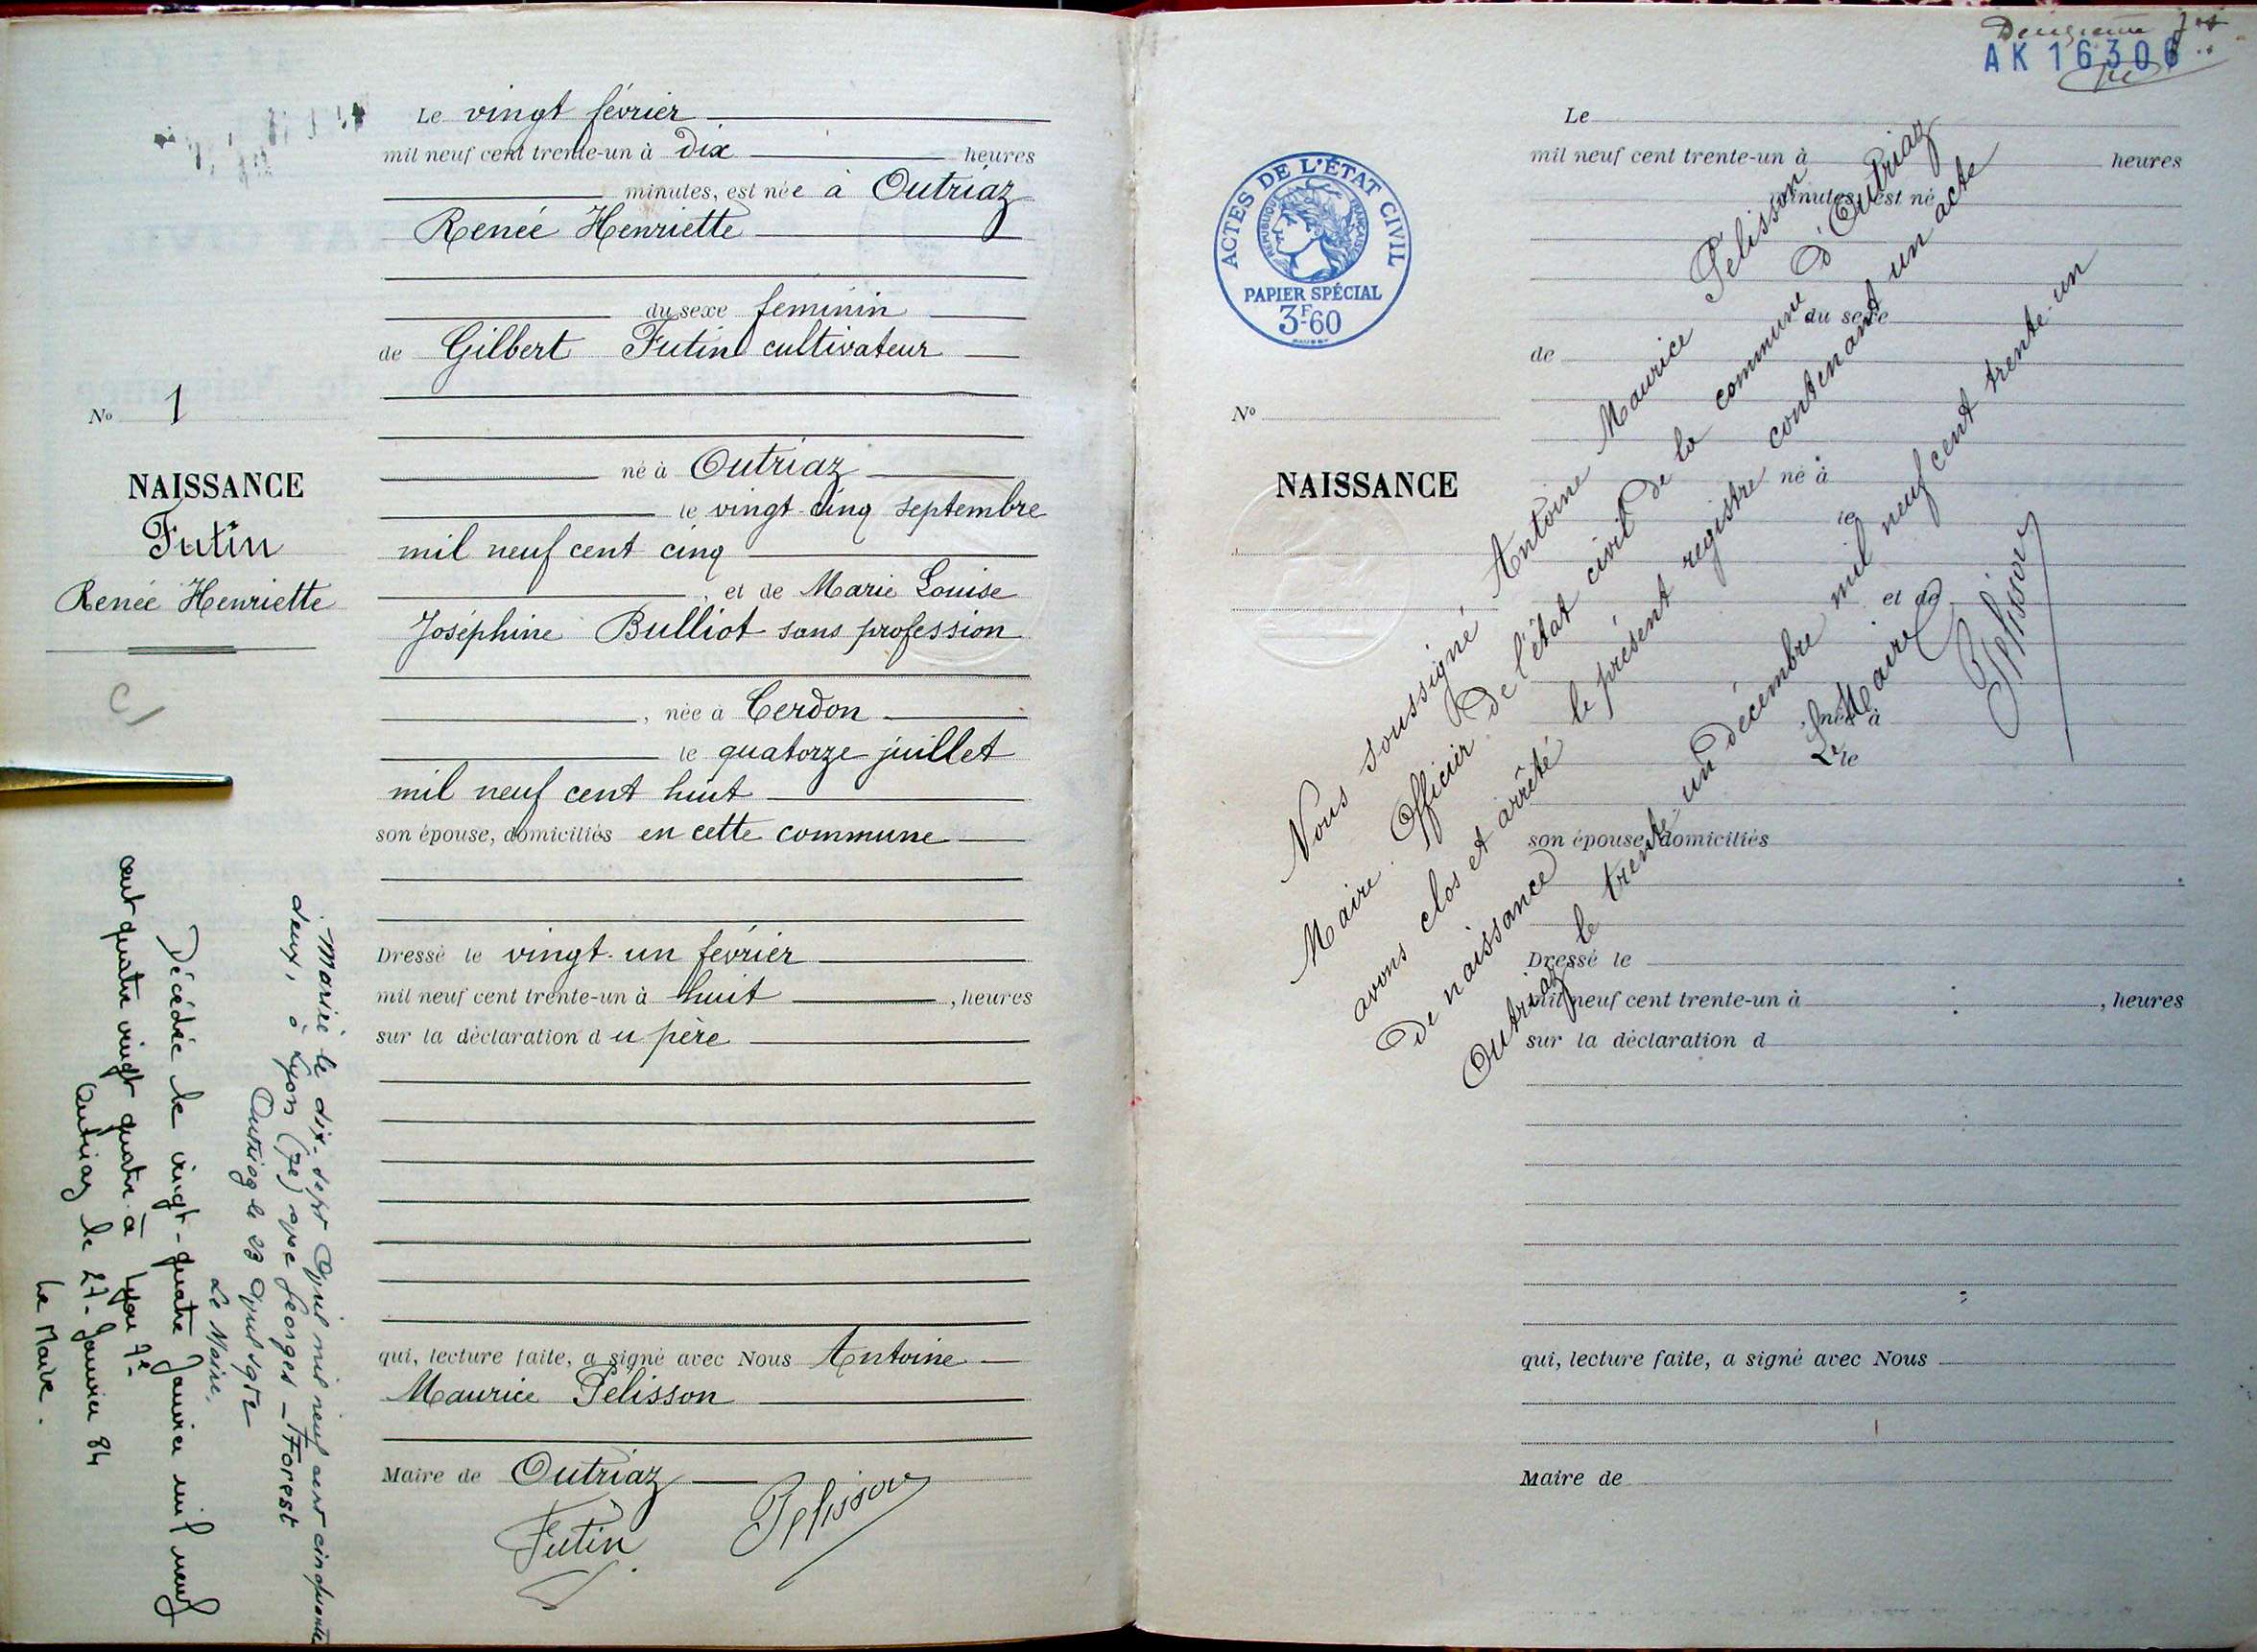 Le vingt février
mil neuf cent trente-un à dix heures
minutes, est née à Outriaz
Renée Henriette
du sexe feminin
de Gilbert Futin cultivateur
né à Outriaz
le vingt-cinq septembre
mil neuf cent cinq
, et de Marie Louise
Joséphine Bulliot sans profession
, née à Cerdon
le quatorze juillet
mil neuf cent huit
son épouse, domiciliés en cette commune
Dressé le vingt-un février
mil neuf cent trente-un à huit , heures
sur la déclaration du père
qui, lecture faite, a signé avec Nous Antoine
Maurice Pelisson
Maire de Outriaz
Futin Pelisson
No 1
NAISSANCE
Futin
Renée Henriette
Mariée le dix-sept Avril mil neuf cent cinquante
deux, à Lyon (7e) avec Georges - Forest
Outriaz le 23 Avril 1952
Le Maire,
Décédée le vingt-quatre Janvier mil neuf
cent quatre vingt quatre à Lyon 7e-
Outriaz le 27 - Janvier 84
Le Maire.
AK 16306
Le
mil neuf cent trente-un à heures
minutes, est né
du sexe
de
né à
le
et de
née à
le
son épouse, domiciliés
Dressé le
mil neuf cent trente-un à , heures
sur la déclaration d
qui, lecture faite, a signé avec Nous
Maire de
ACTES DE L'ÉTAT CIVIL
RÉPUBLIQUE FRANÇAISE
PAPIER SPÉCIAL
3F60
No
NAISSANCE
Nous soussigné, Antoine Maurice Pelisson
Maire. Officier de l'état civil de la commune d'Outriaz
avons clos et arrêté le présent registre contenant un acte
de naissance
Outriaz, le trente-un décembre mil neuf cent trente-un
Le Maire
Pelisson